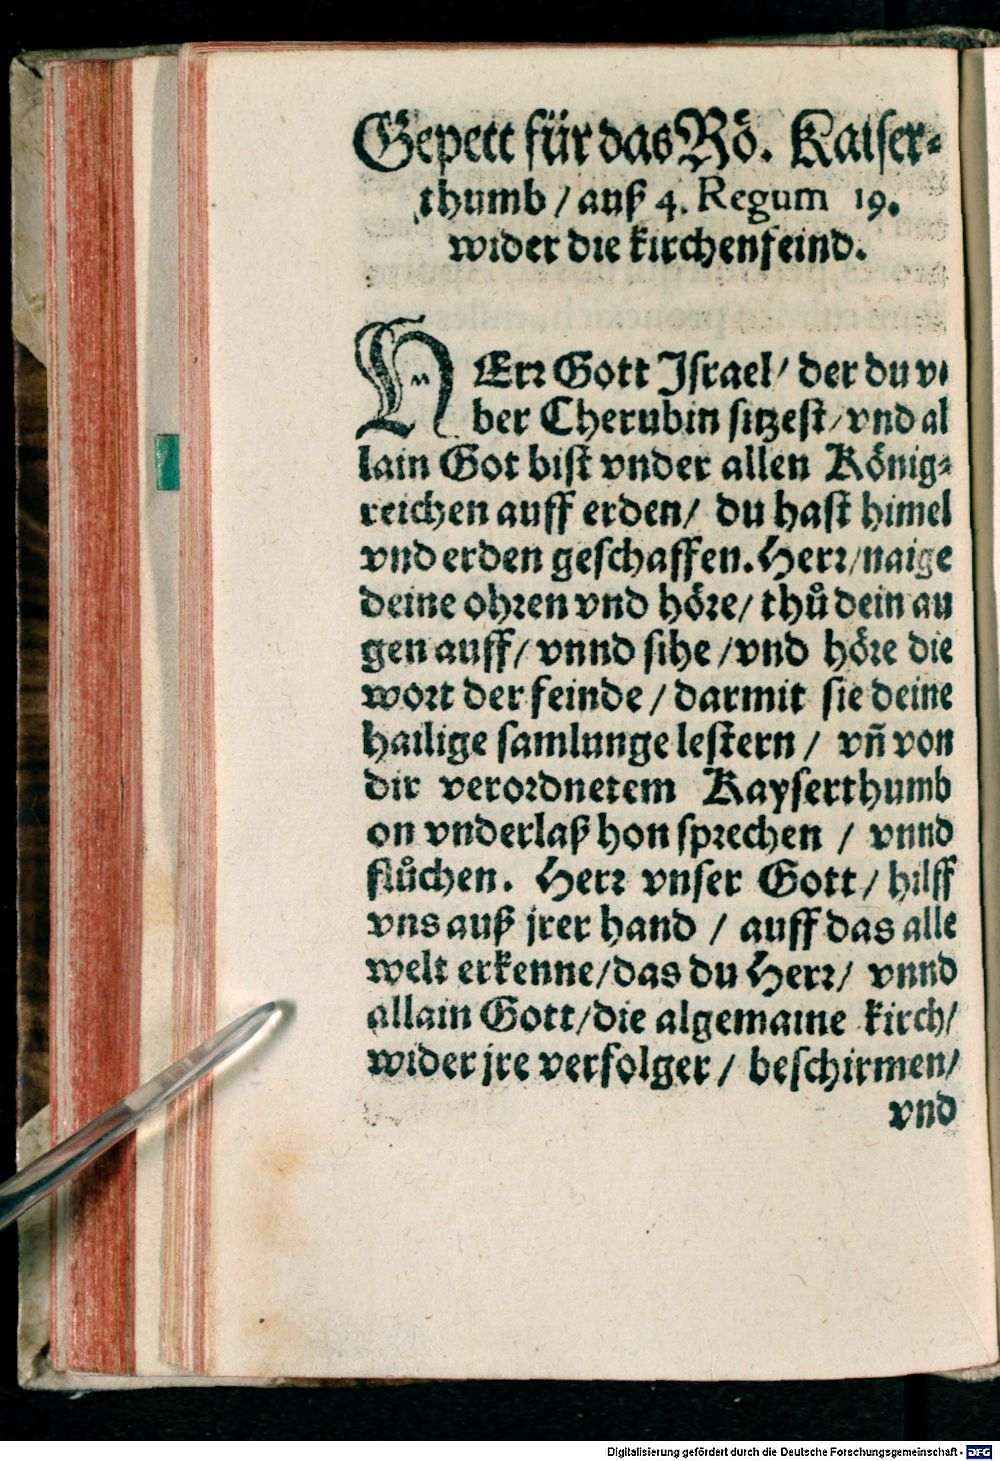 Gepett für das Rö. Kaiser⸗
thumb / auß 4. Regum 19.
wider die kirchenfeind.
HErr Gott Israel / der du v⸗
ber Cherubin sitzest / vnd al
lain Got bist vnder allen König⸗
reichen auff erden / du hast himel
vnd erden geschaffen. Herr / naige
deine ohren vnd höre / thů dein au
gen auff / vnnd sihe / vnd höre die
wort der feinde / darmit sie deine
hailige samlunge lestern / vñ von
dir verordnetem Kayserthumb
on vnderlaß hon sprechen / vnnd
flůchen. Herr vnser Gott / hilff
vns auß jrer hand / auff das alle
welt erkenne / das du Herr / vnnd
allain Gott / die algemaine kirch /
wider jre verfolger / beschirmen /
vnd
Digitalisierung gefördert durch die Deutsche Forschungsgemeinschaft - DFG